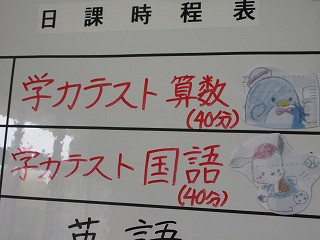 日課時程表
学力テスト 算数
(40分)
学力テスト 国語
(40分)
英語